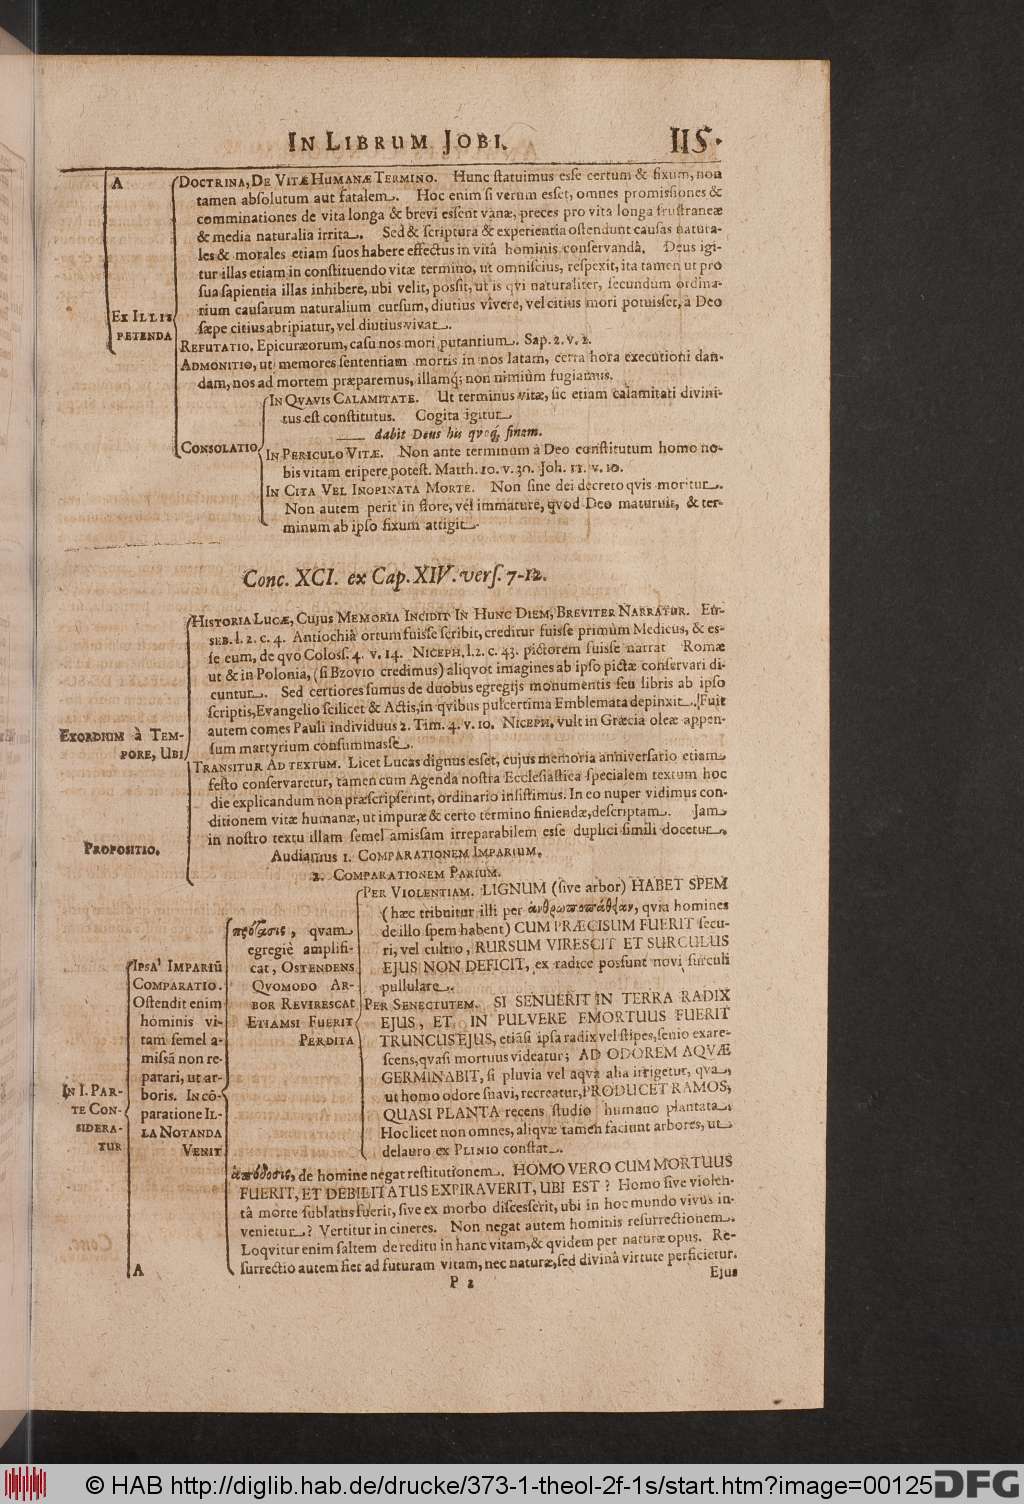 IN LIBRUM JOBI. 115.
A
DOCTRINA, DE VITÆ HUMANÆ TERMINO. Hunc statuimus esse certum & fixum, non
tamen absolutum aut fatalem. Hoc enim si verum esset, omnes promissiones &
comminationes de vita longa & brevi essent vanæ, preces pro vita longa frustraneæ
& media naturalia irrita. Sed & scriptura & experientia ostendunt causas natura-
les & morales etiam suos habere effectus in vitâ hominis conservandâ. Deus igi-
tur illas etiam in constituendo vitæ termino, ut omniscius, respexit, ita tamen ut pro
sua sapientia illas inhibere, ubi velit, possit, ut is qvi naturaliter, secundùm ordina-
rium causarum naturalium cursum, diutius vivere, vel citius mori potuisset, à Deo
sæpe citius abripiatur, vel diutius vivat.
EX ILLIS
PETENDA
REFUTATIO. Epicuræorum, casu nos mori putantium. Sap. 2. v. 2.
ADMONITIO, ut memores sententiam mortis in nos latam, certa hora executioni dan-
dam, nos ad mortem præparemus, illamq; non nimiùm fugiamus.
CONSOLATIO
IN QVAVIS CALAMITATE. Ut terminus vitæ, sic etiam calamitati divini-
tus est constitutus. Cogita igitur
dabit Deus his qvoq; finem.
IN PERICULO VITÆ. Non ante terminum à Deo constitutum homo no-
bis vitam eripere potest. Matth. 10. v. 30. Joh. 11. v. 10.
IN CITA VEL INOPINATA MORTE. Non sine dei decreto qvis moritur.
Non autem perit in flore, vel immature, qvod Deo maturuit, & ter-
minum ab ipso fixum attigit.
Conc. XCI. ex Cap. XIV. vers. 7-12.
EXORDIUM à TEM-
PORE, UBI
HISTORIA LUCÆ, CUJUS MEMORIA INCIDIT IN HUNC DIEM, BREVITER NARRATUR. EU-
SEB. l. 2. c. 4. Antiochiâ ortum fuisse scribit, creditur fuisse primùm Medicus, & es-
se eum, de qvo Coloss. 4. v. 14. NICEPH. l. 2. c. 43. pictorem fuisse narrat Romæ
ut & in Polonia, (si Bzovio credimus) aliqvot imagines ab ipso pictæ conservari di-
cuntur. Sed certiores sumus de duobus egregijs monumentis seu libris ab ipso
scriptis, Evangelio scilicet & Actis, in qvibus pulcertima Emblemata depinxit. Fuit
autem comes Pauli individuus 2. Tim. 4. v. 10. NICEPH. vult in Græcia oleæ appen-
sum martyrium consummasse.
TRANSITUR AD TEXTUM. Licet Lucas dignus esset, cujus memoria anniversario etiam
festo conservaretur, tamen cum Agenda nostra Ecclesiastica specialem textum hoc
die explicandum non præscripserint, ordinario insistimus. In eo nuper vidimus con-
ditionem vitæ humanæ, ut impuræ & certo termino finiendæ, descriptam. Jam
in nostro textu illam semel amissam irreparabilem esse duplici simili docetur.
PROPOSITIO.
Audiamus 1. COMPARATIONEM IMPARIUM.
2. COMPARATIONEM PARIUM.
IN I. PAR-
TE CON-
SIDERA-
TUR
IPSA IMPARIŪ
COMPARATIO.
Ostendit enim
hominis vi-
tam semel a-
missā non re-
parari, ut ar-
boris. In cō-
paratione IL-
LA NOTANDA
VENIT
A
πρότασις, qvam
egregiè amplifi-
cat, OSTENDENS
QVOMODO AR-
BOR REVIRESCAT
ETIAMSI FUERIT
PERDITA
PER VIOLENTIAM. LIGNUM (sive arbor) HABET SPEM
(hæc tribuitur illi per ἀνθρωποπάθειαν, qvia homines
de illo spem habent) CUM PRÆCISUM FUERIT secu-
ri, vel cultro, RURSUM VIRESCIT ET SURCULUS
EJUS NON DEFICIT, ex radice possunt novi surculi
pullulare.
PER SENECTUTEM. SI SENUERIT IN TERRA RADIX
EJUS, ET IN PULVERE EMORTUUS FUERIT
TRUNCUS EJUS, etiāsi ipsa radix vel stipes, senio exare-
scens, qvasi mortuus videatur; AD ODOREM AQVÆ
GERMINABIT, si pluvia vel aqva alia irrigetur, qva,
ut homo odore suavi, recreatur, PRODUCET RAMOS,
QUASI PLANTA recens studio humano plantata.
Hoc licet non omnes, aliqvæ tamen faciunt arbores, ut
de lauro ex PLINIO constat.
ἀπόδοσις, de homine negat restitutionem. HOMO VERO CUM MORTUUS
FUERIT, ET DEBILITATUS EXPIRAVERIT, UBI EST? Homo sive violen-
tâ morte sublatus fuerit, sive ex morbo discesserit, ubi in hoc mundo vivus in-
venietur? Vertitur in cineres. Non negat autem hominis resurrectionem.
Loqvitur enim saltem de reditu in hanc vitam, & qvidem per naturæ opus. Re-
surrectio autem fiet ad futuram vitam, nec naturæ, sed divinâ virtute perficietur.
P 2
Ejus
© HAB http://diglib.hab.de/drucke/373-1-theol-2f-1s/start.htm?image=00125 DFG